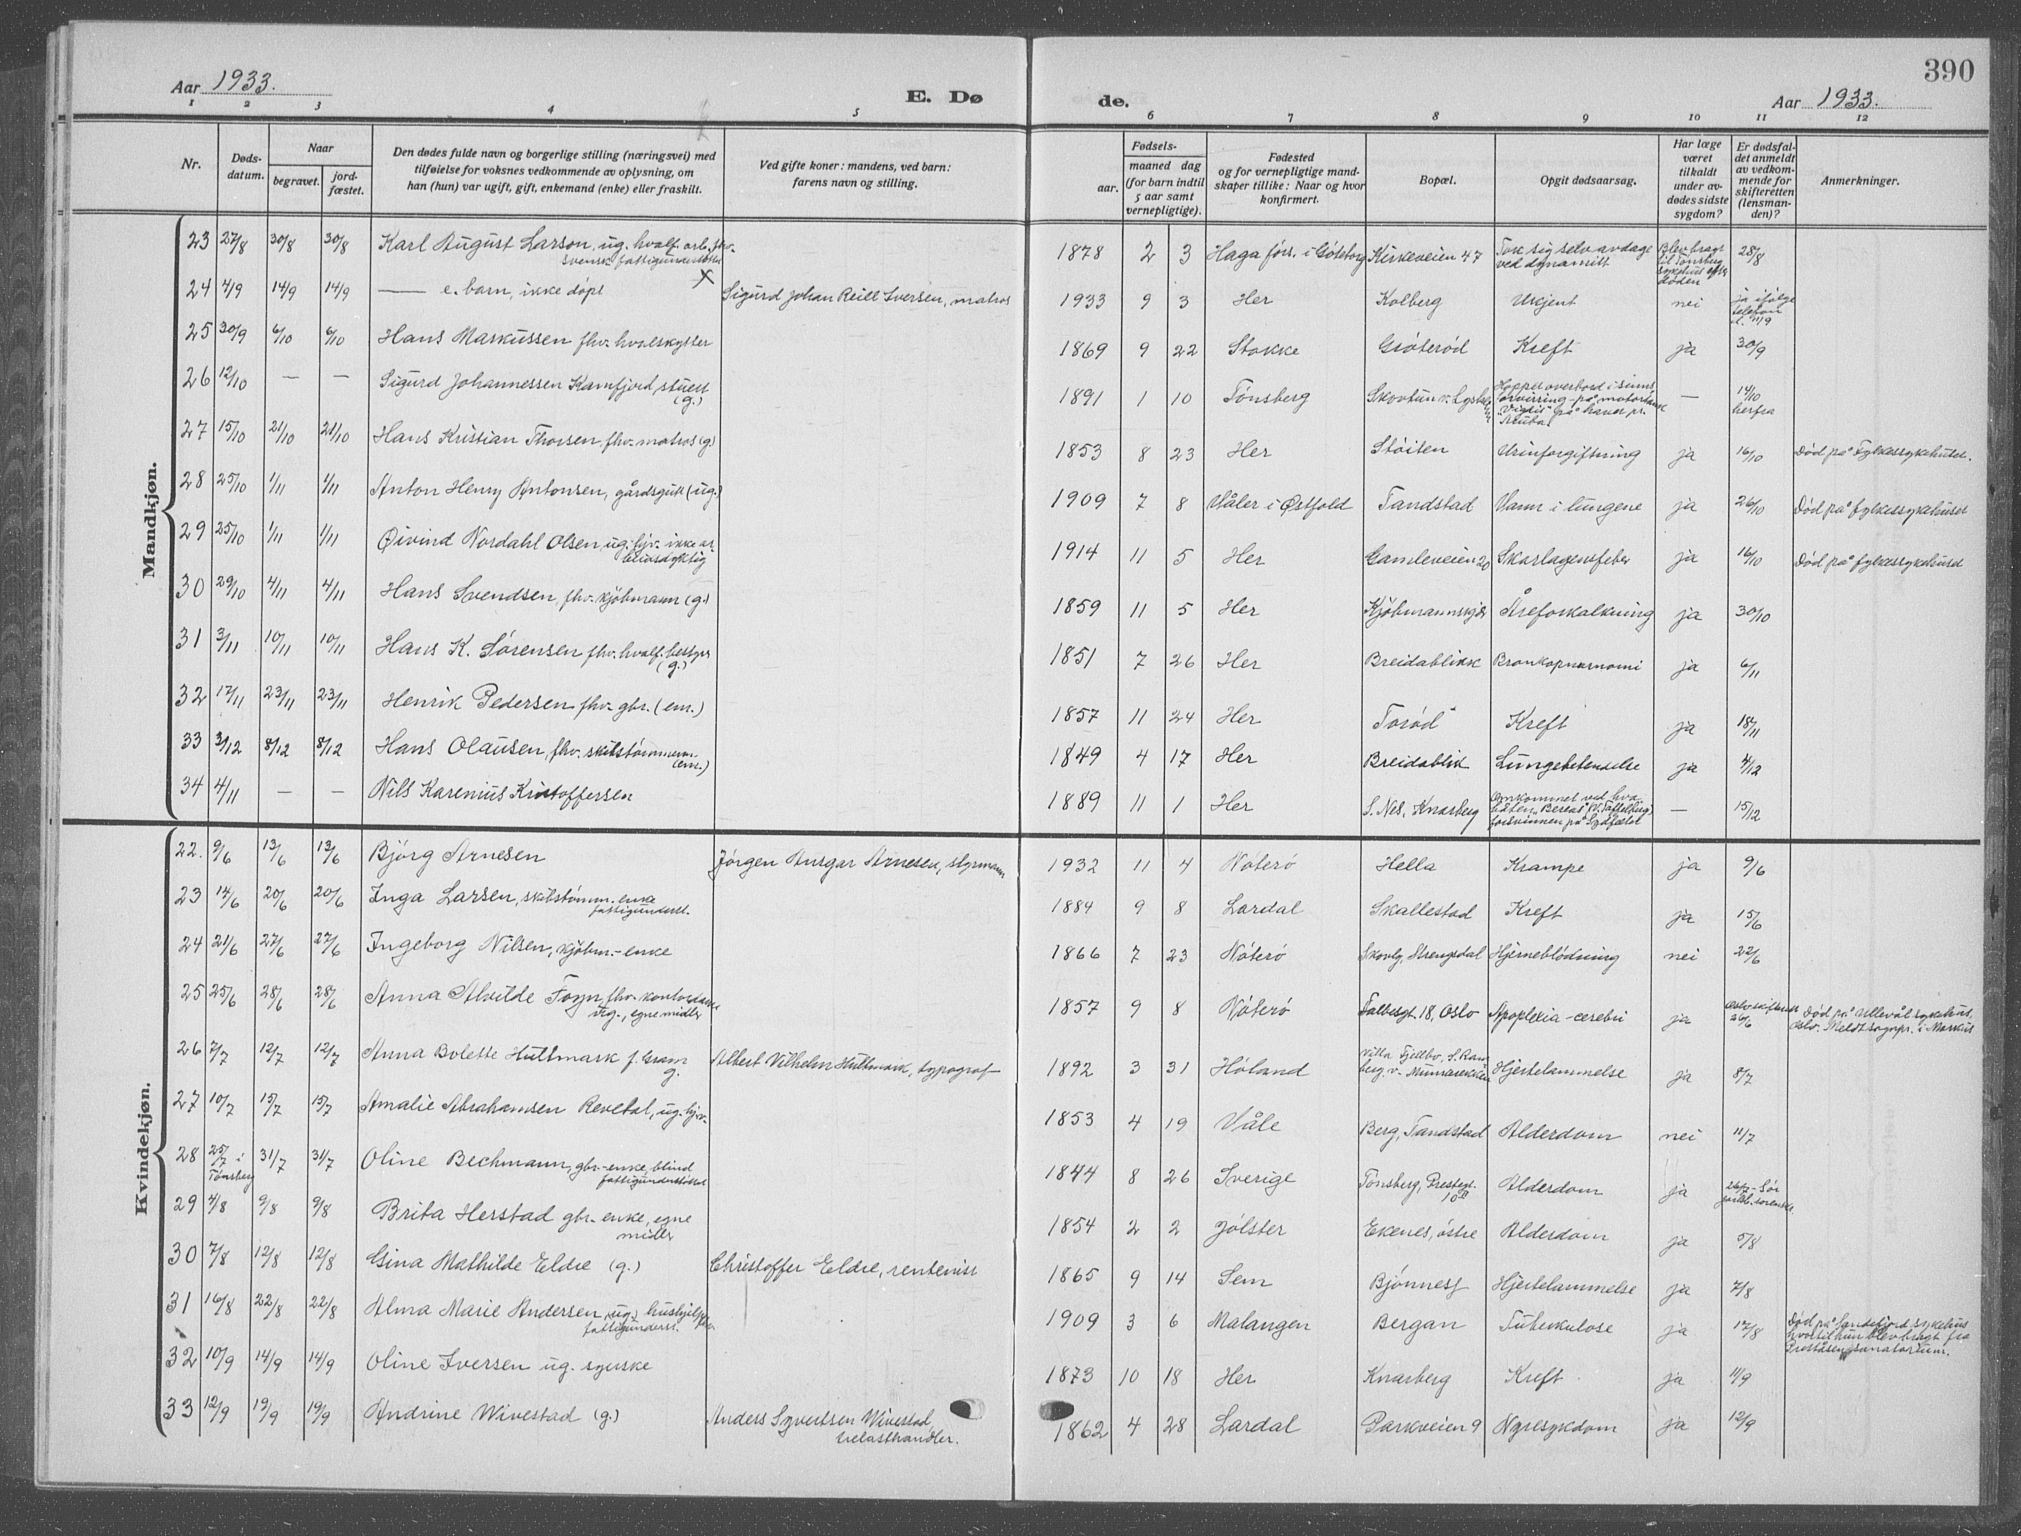 390
Aar 1933.
E. Døde.
Aar 1933.
1 2 3 4 5 6 7 8 9 10 11 12
Nr.
Dødsdatum.
Naar
begravet.
jordfæstet.
Den dødes fulde navn og borgerlige stilling (næringsvei) med
tilføielse for voksnes vedkommende av oplysning, om
han (hun) var ugift, gift, enkemand (enke) eller fraskilt.
Ved gifte koner: mandens, ved barn:
farens navn og stilling.
Fødsels-
aar.
maaned dag
(for barn indtil
5 aar samt
vernepligtige).
Fødested
og for vernepligtige mand-
skaper tillike: Naar og hvor
konfirmert.
Bopæl.
Opgit dødsaarsag.
Har læge
været
tilkaldt
under av-
dødes sidste
sygdom?
Er dødsfal-
det anmeldt
av vedkom-
mende for
skifteretten
(lensman-
den)?
Anmerkninger.
Mandkjøn.
23 27/8 30/8 30/8 Karl August Larson, ug. hvalf. arb. fhv. svensk fattigunderstøttet 1878 2 3 Haga fors. i Göteborg Kirkeveien 47 Tok sig selv avdage ved dynamitt Blev bragt til Tønsberg sykehus efter døden 28/8
24 4/9 14/9 14/9 — e. barn, ikke døpt X Sigurd Johan Reill Iversen, matros 1933 9 3 Her Kolberg Ukjent nei ja ifølge telefon d. 11/9
25 30/9 6/10 6/10 Hans Markussen fhv. hvalskytter 1869 9 22 Stokke Grøterød Kreft ja 30/9
26 12/10 — — Sigurd Johannessen Kamfjord, stuert (g.) 1891 1 10 Tønsberg Skovtun v. Hoppet overbord i sinnsforvirring på motortank "Vigdis" på havet pr. Aruba — 14/10 herfra
27 15/10 21/10 21/10 Hans Kristian Thorsen, fhv. matros (g) 1853 8 23 Her Støiten Urinforgiftning ja 16/10 Død på Fylkessykehuset.
28 25/10 1/11 1/11 Anton Henry Antonsen, gårdsgutt (ug.) 1909 7 8 Våler i Østfold Tandstad Vann i lungene ja 26/10 Død på fylkessykehuset
29 25/10 1/11 1/11 Øivind Nordahl Olsen, ug. hjv. ikke arbeidsdyktig 1914 11 5 Her Gamleveien 20 Skarlagensfeber ja 16/10 Død på fylkessykehuset
30 29/10 4/11 4/11 Hans Svendsen, fhv. kjøbmann (g.) 1859 11 5 Her Kjøbmannskjær Åreforkalkning ja 30/10
31 3/11 10/11 10/11 Hans K. Sørensen fhv. hvalf. bestyr (g.) 1851 7 26 Her Breidablikk Bronkopneumoni ja 6/11
32 17/11 23/11 23/11 Henrik Pedersen fhv. gbr. (em.) 1857 11 24 Her Torød Kreft ja 18/11
33 3/12 8/12 8/12 Hans Olausen, fhv. skibstømmerm. (em.) 1849 4 17 Her Breidablik Lungebetendelse ja 4/12
34 4/11 — — Nils Karenius Kristoffersen 1889 11 1 Her S. Nes, Knarberg Omkommet ved hvalbåten "Bereas" forsvinnen på Sydfeltet — 15/12
Kvindekjøn.
22. 9/6 13/6 13/6 Bjørg Arnesen Jørgen Ansgar Arnesen, styrmann 1932 11 4 Nøterø Hella Krampe ja 9/6
23 14/6 20/6 20/6 Inga Larsen, skibstømm. enke fattigunderst. 1884 9 8 Lardal Skallestad Kreft ja 15/6
24 21/6 27/6 27/6 Ingeborg Nilsen, kjøbm.-enke 1866 7 23 Nøterø Skovly, Strengsdal Hjerneblødning nei 22/6
25 25/6 28/6 28/6 Anna Alvilde Foyn, fhv. kontordame ug., egne midler 1857 9 8 Nøterø Falbesgt. 18, Oslo Apoplexia-cerebri ja Oslo skifterett 26/6 Død på Ullevål sykehus, Oslo. Meldt sognepr. i Markus
26 7/7 12/7 12/7 Anna Bolette Hultmark f. Gram g. Albert Vilhelm Hultmark, typograf 1892 3 31 Høland Villa Fjellbo, S. Ramberg v. Munkerekken Hjertelammelse ja 8/7
27 10/7 15/7 15/7 Amalie Abrahamsen Revetal, ug. hjv. 1853 4 19 Våle Berg, Tandstad Alderdom nei 11/7
28 25/7 i Tønsberg 31/7 31/7 Oline Bechmann, gbr.-enke, blind fattigunderstøttet 1844 8 26 Sverige Tønsberg, Prestegt. 10 B Alderdom ja 26/7
29 4/8 9/8 9/8 Brita Herstad gbr.-enke, egne midler 1854 2 2 Jølster Ekenes, østre Alderdom ja 5/8
30 7/8 12/8 12/8 Gina Mathilde Eldre (g.) Christoffer Eldre, rentenist 1865 9 14 Sem Bjønnes Hjertelammelse ja 7/8
31 16/8 22/8 22/8 Alma Marie Andersen, ug. hushjelp fattigunderst. 1909 3 6 Malangen Bergan Tuberkulose ja 17/8 Død på Sandefjord sykehus hvortil hun blev bragt fra Preståsen sanatorium.
32 10/9 14/9 14/9 Oline Iversen ug. syerske 1873 10 18 Her Knarberg Kreft ja 11/9
33 12/9 19/9 19/9 Andrine Wivestad (g.) Anders Syvertsen Wivestad, trelasthandler. 1862 4 28 Lardal Parkveien 9 Nyresykdom ja 12/9